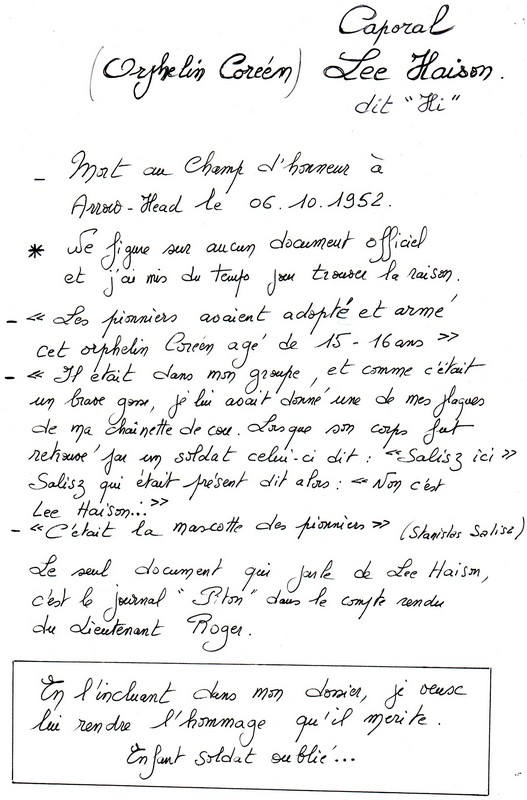 Caporal
(Orphelin Coréen) Lee Haison.
dit "Hi"
- Mort au Champ d'honneur à
Arrow-Head le 06.10.1952.
* Ne figure sur aucun document officiel
et j'ai mis du temps pour trouver la raison.
- « Les pionniers avaient adopté et armé
cet orphelin Coréen agé de 15-16 ans »
- « Il était dans mon groupe, et comme c'était
un brave gosse, je lui avait donné une de mes plaques
de ma chaînette de cou. Lorsque son corps fut
retrouvé par un soldat celui-ci dit : « Salisz ici »
Salisz qui était présent dit alors : « Non c'est
Lee Haison... »
- « C'était la mascotte des pionniers » (Stanislas Salisz)
Le seul document qui parle de Lee Haison,
c'est le journal "Piton" dans le compte rendu
du Lieutenant Roger.
En l'incluant dans mon dossier, je veux
lui rendre l'hommage qu'il mérite.
Enfant soldat oublié...